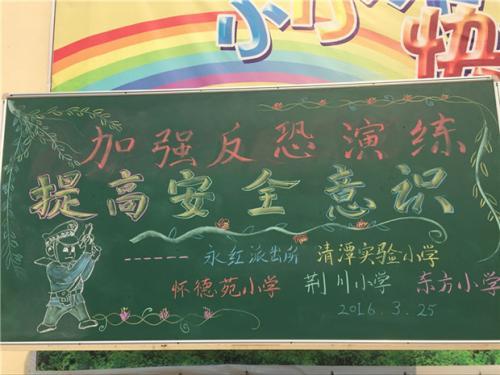 加强反恐演练
提高安全意识
------永红派出所 清潭实验小学
怀德苑小学 荆川小学 东方小学
2016.3.25